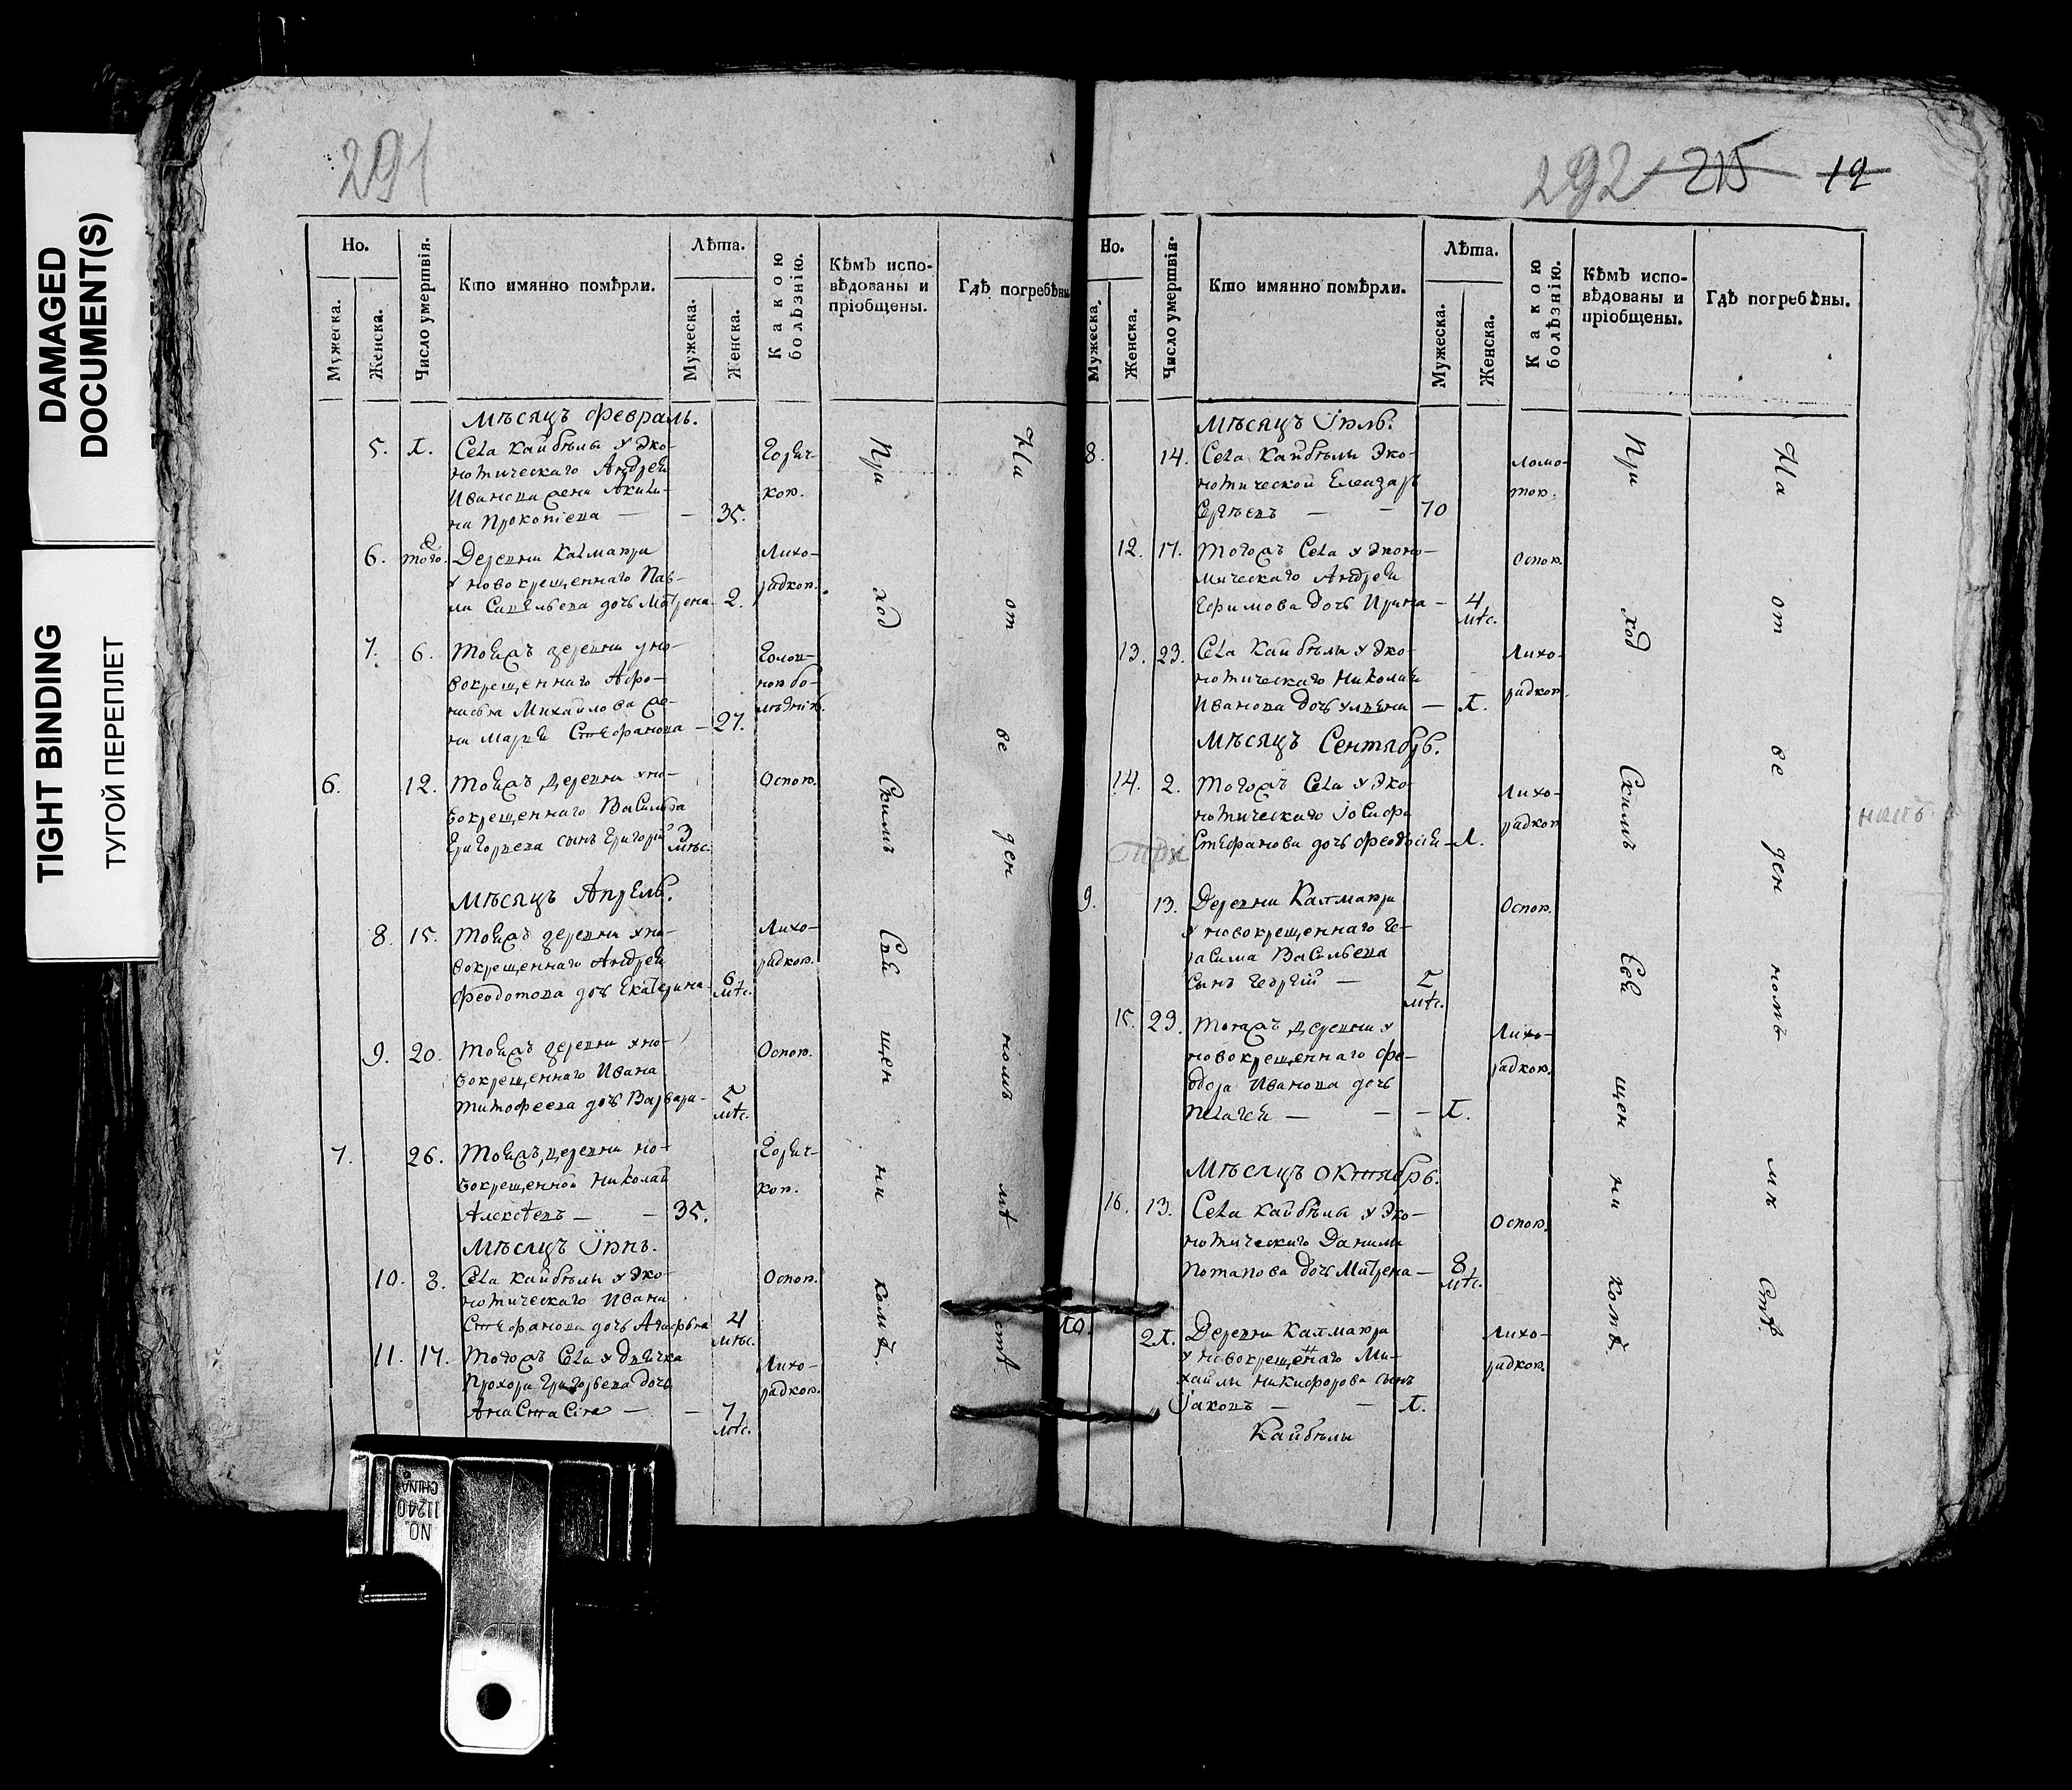 DAMAGED
DOCUMENT(S)
TIGHT BINDING
ТУГОЙ ПЕРЕПЛЕТ
291
Но.
Мужеска.
Женска.
Число умертвія.
Кто имянно помѣрли.
Лѣта.
Мужеска.
Женска.
Какою
болѣзнію.
Кѣмъ испо-
вѣдованы и
пріобщены.
Гдѣ погребѣны
Мѣсяцъ Февраль.
5.
Села Кайбѣлы у Эко-
номическаго Андрея
Иванова жена Акили-
на Прокопіева — — 35.
Горяч-
кою.
6. того.
Деревни Калмаюри
у новокрещеннаго Пав-
ла Савельева дочь Матрена 2.
Лихо-
радкою.
7. 6.
Тояжъ деревни у но-
вокрещеннаго Афо-
насья Михайлова же-
на Марья Стефанова — 27.
6. 12.
Тояжъ деревни у но-
вокрещеннаго Василья
Григорьева сынъ Григорій 3
мѣс.
Оспою.
Мѣсяцъ Апрель.
8. 15.
Тояжъ деревни у но-
вокрещеннаго Андрея
Феодотова дочь Екатерина 6
мѣс.
Лихо-
радкою.
9. 20.
Тояжъ деревни у но-
вокрещеннаго Ивана
Тимофеева дочь Варвара — 5
мѣс.
Оспою.
7. 26.
Тояжъ деревни но-
вокрещенной Николай
Алексѣевъ — — 35.
Горяч-
кою.
Мѣсяцъ Іюнь.
10. 8.
Села Кайбѣлы у Эко-
номическаго Ивана
Стефанова дочь Агафья 4
мѣс.
Оспою.
11. 17.
Тогожъ Села у дьячка
Прохора Григорьева дочь
Анастасія — — 7
мѣс.
Лихо-
радкою.
При ход скимъ свя щен ни комъ.
На от ве ден номъ мѣ стѣ
292 215 12
Но.
Мужеска.
Женска.
Число умертвія.
Кто имянно помѣрли.
Лѣта.
Мужеска.
Женска.
Какою
болѣзнію.
Кѣмъ испо-
вѣдованы и
пріобщены.
Гдѣ погребѣны.
Мѣсяцъ Іюль.
8. 14.
Села Кайбѣлы Эко-
номической Елеазаръ
Сергѣевъ — — 70
ломо-
тою.
12. 17.
Тогожъ Села у Эконо-
мическаго Андрея
Ефимова дочь Ирина — 4
мѣс.
Оспою.
13. 23.
Села Кайбѣлы у Эко-
номическаго Николая
Иванова дочь Ульяна —
Лихо-
радкою.
Мѣсяцъ Сентябрь.
14. 2.
Тогожъ Села у Эко-
номическаго Іосифа
Стефанова дочь Феодосія
Лихо-
радкою
9. 13.
Деревни Калмаюри
у новокрещеннаго Ге-
расима Васильева
сынъ Георгій — 5
мѣс.
Оспою.
15. 29.
Тояжъ деревни у
новокрещеннаго Фе-
одора Иванова дочь
Пелагея —
Лихо-
радкою.
Мѣсяцъ Октябрь.
16. 13.
Села Кайбѣлы у Эко-
номическаго Данилы
Потапова дочь Матрена — 8
мѣс.
Оспою.
10.
Деревни Калмаюри
у новокрещеннаго Ми-
хайлы Никифорова сынъ
Іаковъ —
Лихо-
радкою.
При ход скимъ свя щен ни комъ.
На от ве ден номъ мѣ стѣ.
Кайбѣлы
NO.
11240
CHINA